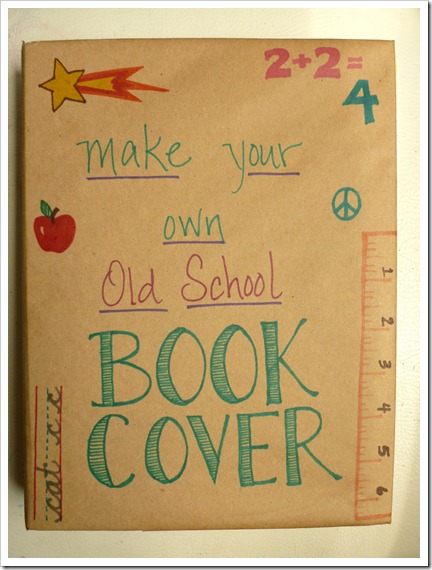 2+2=
4
make your
own
Old School
BOOK
COVER
1
2
3
4
5
6
cat c c